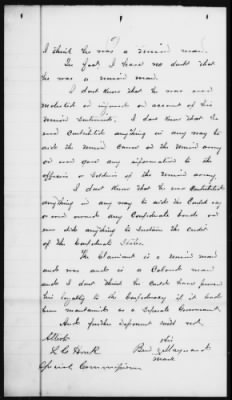 I think he was a union man.
In fact, I have no doubt that
he was a union man.
I dont know that he was ever
molested or injured on account of his
union sentiments. I dont know that he
ever contributed anything in any way to
aide the union cause or the union army
or ever gave any information to the
officers or soldiers of the union army.
I dont know that he ever contributed
anything in any way to aide the Confed cay
or ever owned any Confederate bonds or
ever did anything to sustain the credit
of the Confederate States.
The Claimant is a union man
and was and is a Colored man
and I dont think he could have proven
his loyalty to the Confederacy if it had
been maintained as a separate Government.
And further deponent saith not.
Attest his
L C Houk Ben x
Special Commissioner mark